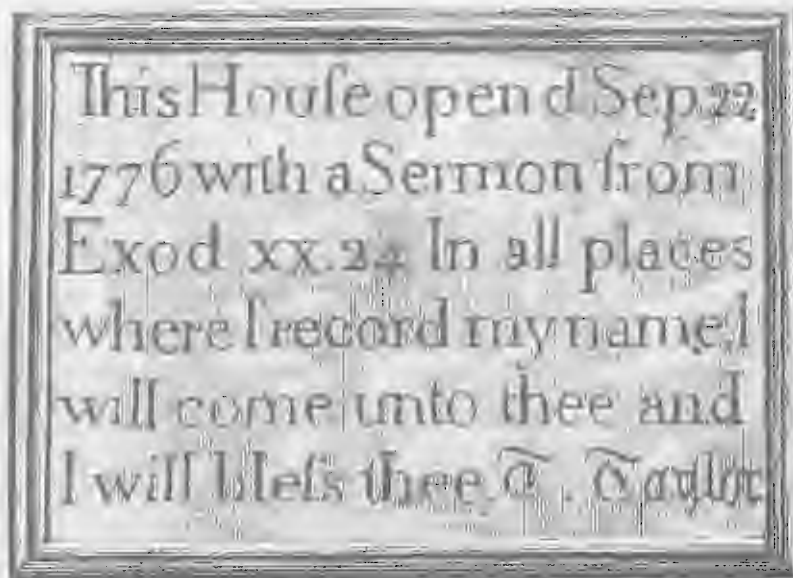 This Houſe open d Sep 22
1776 with a Sermon from
Exod xx.24 In all places
where I record my name I
will come unto thee and
I will bleſs thee. T. Taylor